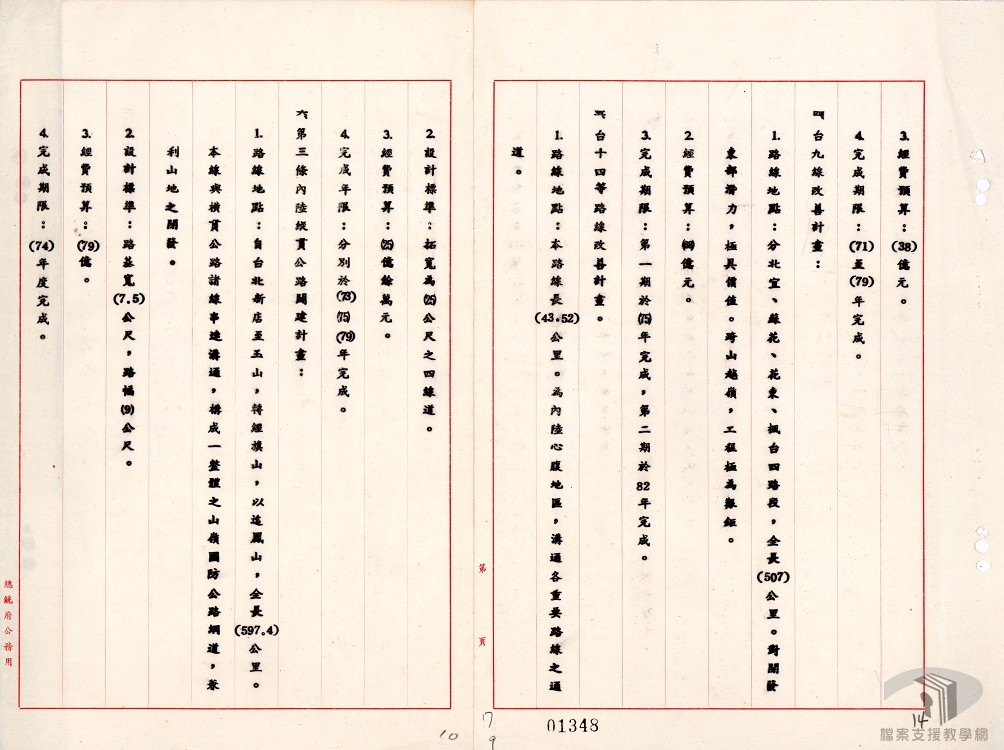 3. 經費預算：(38)億元。
4. 完成期限：(71)至(79)年完成。
四、台九線改善計畫：
1. 路線地點：分北宜、蘇花、花東、楓台四路段，全長(507)公里。對開發
東部潛力，極具價值。跨山越嶺，工程極為艱鉅。
2. 經費預算：億元。
3. 完成期限：第一期於(75)年完成，第二期於82年完成。
五、台十四等路線改善計畫。
1. 路線地點：本路線長(43.52)公里。為內陸心腹地區，溝通各重要路線之通
道。
2. 設計標準：拓寬為(25)公尺之四線道。
3. 經費預算：(25)億餘萬元。
4. 完成年限：分別於(73)(75)(79)年完成。
六、第三條內陸縱貫公路闢建計畫：
1. 路線地點：自台北新店至玉山，轉經旗山，以迄鳳山，全長(597.4)公里。
本線與橫貫公路諸線串連溝通，構成一整體之山嶺國防公路網道，兼
利山地之開發。
2. 設計標準：路基寬(7.5)公尺，路幅(9)公尺。
3. 經費預算：(79)億。
4. 完成期限：(74)年度完成。
第 頁
總統府公務用
01348
17
9
10
14
檔案支援教學網